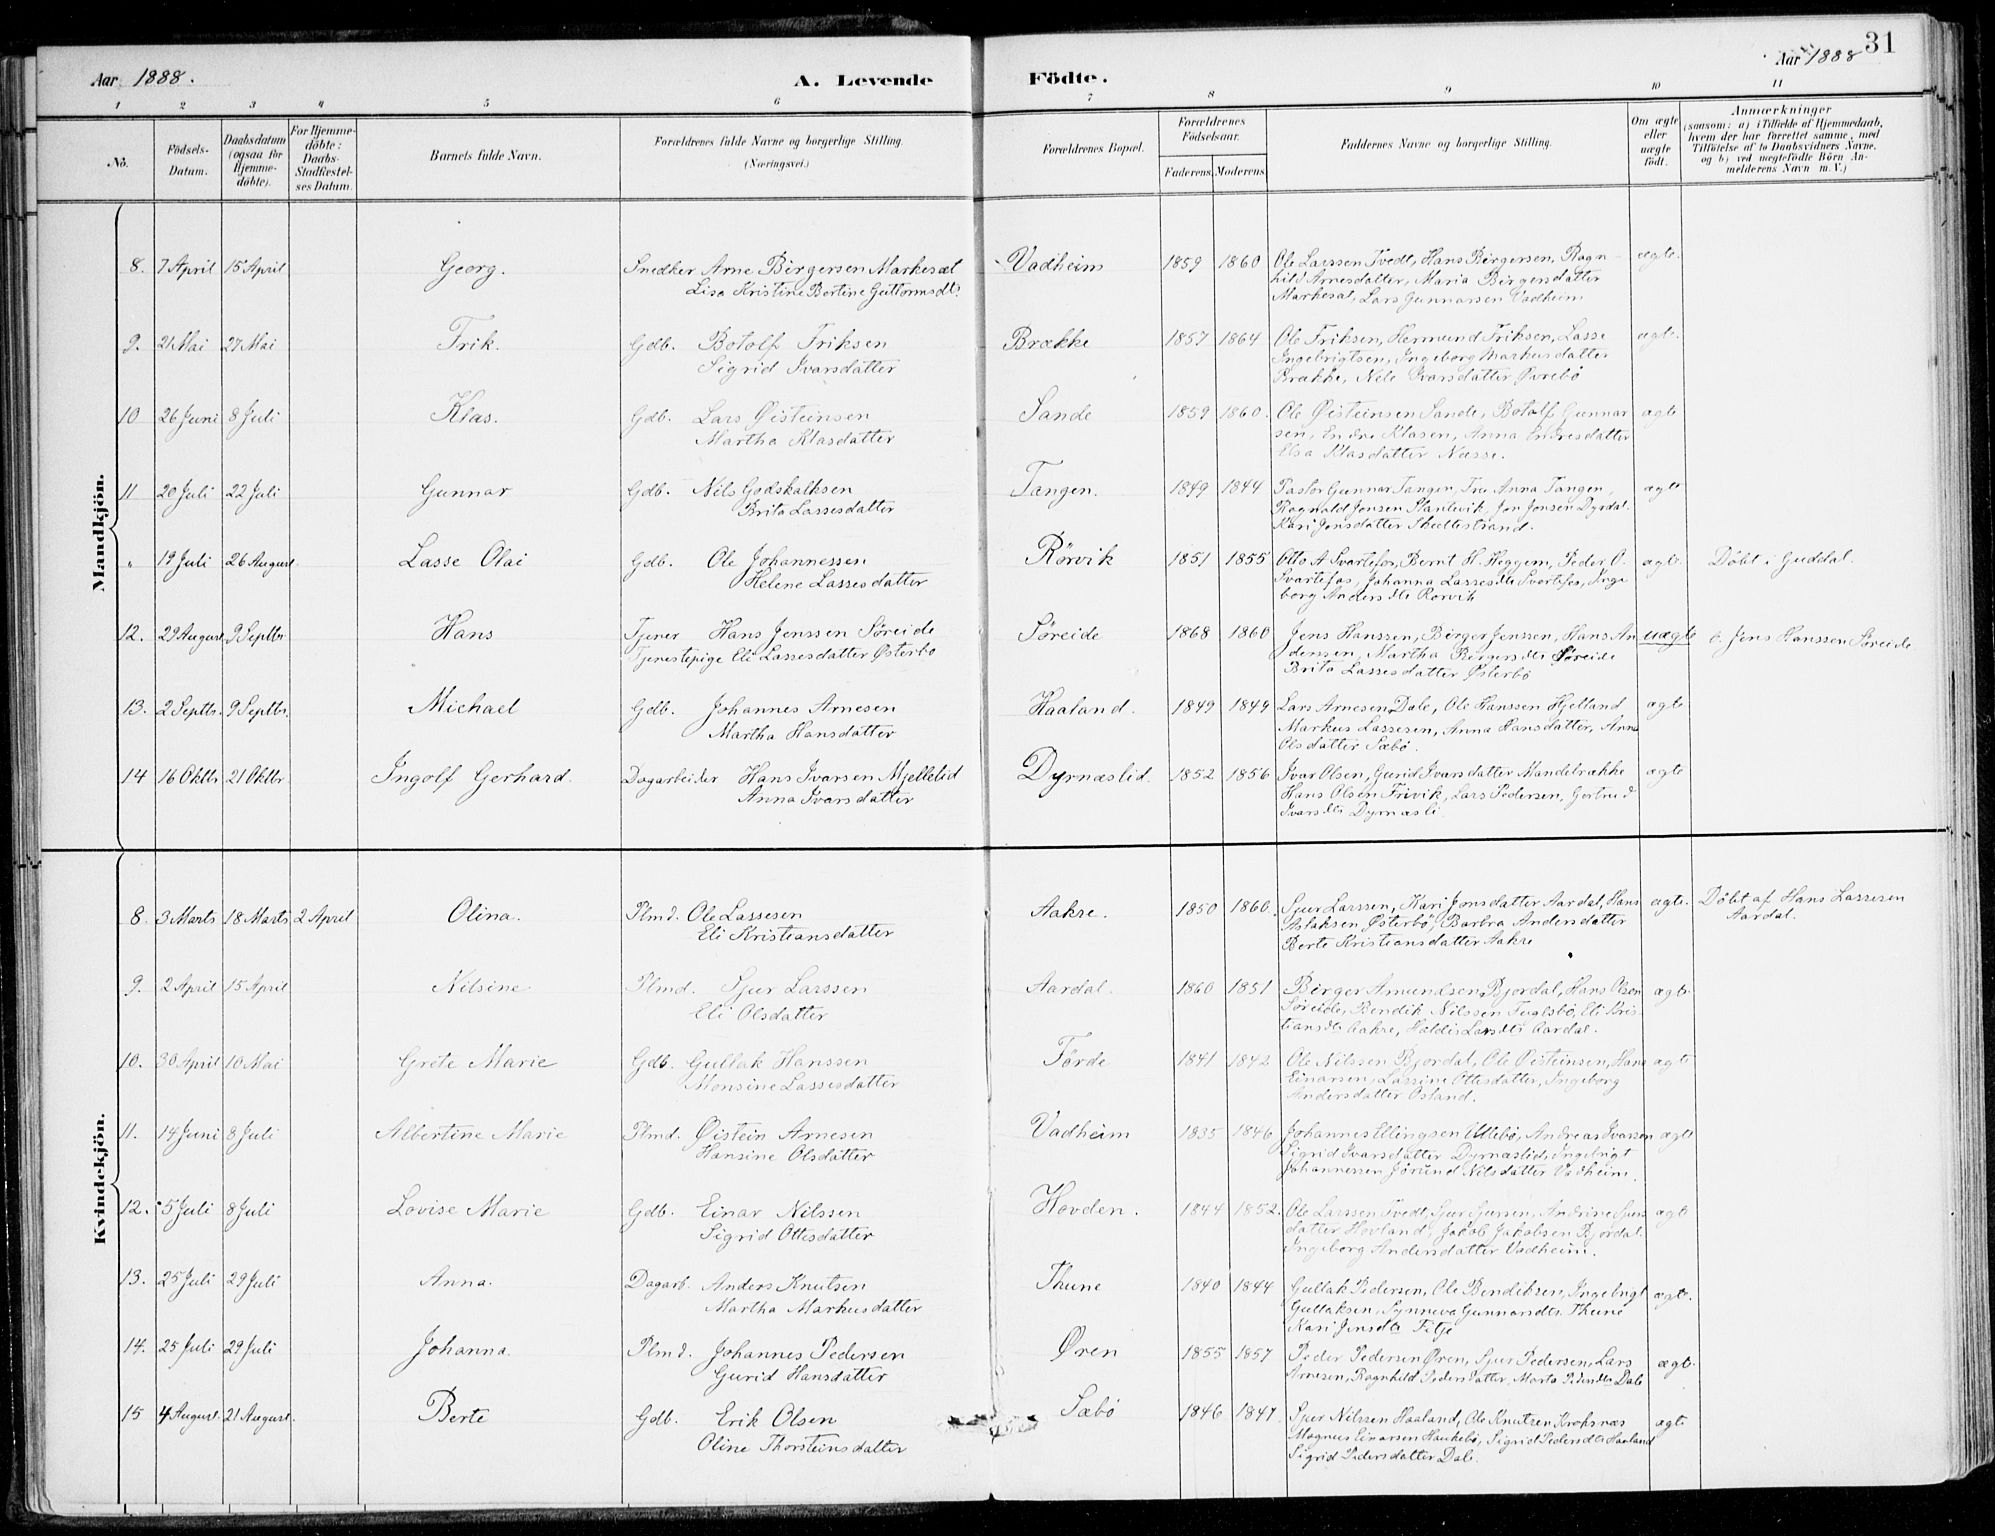 Aar 1888.
A. Levende Födte.
Aar 1888
31
1 2 3 4 5 6 7 8 9 10 11
No.
Födsels-Datum.
Daabsdatum (ogsaa for Hjemme-döbte).
For Hjemme-döbte: Daabs-Stadfæstel-ses Datum.
Barnets fulde Navn.
Forældrenes fulde Navne og borgerlige Stilling. (Næringsvei.)
Forældrenes Bopæl.
Forældrenes Födselsaar.
Faderens. Moderens.
Faddernes Navne og borgerlige Stilling.
Om ægte eller uægte födt.
Anmærkninger
(saasom: a) i Tilfælde af Hjemmedaab, hvem der har forrettet samme, med Tilföielse af to Daabsvidners Navne, og b) ved uægtefödte Börn An-melderens Navn m.V.)
Mandkjön.
8. 7 April 15 April Georg. Snedker Arne Birgersen Markesæt Vadheim 1859 1860 Ole Larssen Tvedt, Hans Birgersen, Ragn- ægte.
Lisa Kristine Bertine Guttormsdt. hild Arnesdatter, Maria Birgersdatter
Markesæt, Lars Gunnarsen Vadheim
9. 21 Mai 27 Mai Erik. Gdb. Botolf Eriksen Brække 1857 1864 Ole Eriksen, Hermund Eriksen, Lasse ægte.
Sigrid Ivarsdatter Ingebrigtsen, Ingeborg Markusdatter
Brække, Nele Ivarsdatter Øvrebö
10 26 Juni 8 Juli Klas. Gdb. Lars Øisteinsen Sande 1859 1860. Ole Øisteinsen Sande, Botolf Gunnar ægte
Martha Klasdatter sen, Endre Klasen, Anna Endresdatter
Elsa Klasdatter Næsse.
11 20 Juli 22 Juli Gunnar Gdb. Nils Godskalksen Tangen. 1849 1844 Pastor Gunnar Tangen, Fru Anna Tangen, ægte
Brita Lassesdatter Ragnvald Jensen Slantevik, Jon Jonsen Dyrdal.
Kari Jonsdatter
" 19 Juli 26 August. Lasse Olai Gdb. Ole Johannessen Rørvik 1851 1855 Otto A Svartefos, Bernt H. Heggem, Peder O. ægte. Döbt i Guddal.
Helene Lassesdatter Svartefos, Johanna Lassesdtr Svartefos, Inge
borg Andersdtr Rørvik
12. 29 August 9 Septbr Hans Tjener Hans Jenssen Søreide Søreide 1868 1860 Jens Hanssen, Birger Jenssen, Hans An uægte Jens Hanssen Søreide
Tjenestepige Eli Lassesdatter Østerbö densen, Martha Birgersdtr Søreide
Brita Lassesdatter Østerbö
13. 2 Septbr. 9 Septbr. Michael Gdb. Johannes Arnesen Haaland. 1849 1849 Lars Arnesen Dale, Ole Hanssen Hjelland ægte
Martha Hansdatter Markus Lassesen, Anna Hansdatter, Anna
Olsdatter Sæbö.
14 16 Oktbr 21 Oktbr Ingolf Gerhard. Dagarbeider Hans Ivarsen Mjellelid Dyrnæslid. 1852 1856 Ivar Olsen, Gurid Ivarsdatter Mandebrække ægte
Anna Ivarsdatter Hans Olsen Trivik, Lars Pedersen, Gertrud
Ivarsdtr Dyrnæsli.
Kvindekjön.
8. 3 Marts 18 Marts 2 April Olina. Plmd. Ole Lassesen Aakre. 1850 1860. Sjur Larssen, Kari Jonsdatter Aardal, Hans ægte. Döbt af Hans Lassesen
Eli Kristiansdatter Aslaksen Østerbö, Barbra Andersdatter Aardal.
Berte Kristiansdatter Aakre
9. 2 April 15 April Nilsine Plmd. Sjur Larssen Aardal. 1860 1851 Birger Amundsen Bjordal, Hans Olsen ægte
Eli Olsdatter Søreide, Bendik Nilssen Fuglsbö, Eli Kris-
tiansdtr Aakre, Haldis Larsdtr Aardal.
10. 30 April 10 Mai Grete Marie Gdb. Gullak Hanssen Førde 1841 1842 Ole Nilssen Bjordal, Ole Øisteinsen, Hans ægte
Monsine Lassesdatter Einarsen, Lassine Ottesdatter, Ingeborg
Andersdatter Osland.
11. 14 Juni 8 Juli Albertine Marie Plmd. Øistein Arnesen Vadheim 1835 1846 Johannes Ellingsen Ullebö, Andreas Ivarssen ægte
Hansine Olsdatter Sigrid Ivarsdatter Dyrnæslid, Ingebrigt
Johannessen, Jørund Nilsdatter Vadheim.
12. 5 Juli 8 Juli Lovise Marie Gdb. Einar Nilssen Hovden. 1844 1852. Ole Larssen Tvedt, Sjur Sjursen, Andrine Sjurs ægte
Sigrid Ottesdatter datter Hovland, Jacob Jakobsen Bjordal.
Ingeborg Andersdatter Vadheim.
13. 25 Juli 29 Juli Anna. Dagarb. Anders Knutsen Thune 1840 1844 Gullak Pedersen, Ole Bendiksen, Ingebrigt ægte.
Martha Markusdatter Gullaksen, Synneva Gunnarsdtr Thune
Kari Jensdtr Fitje
14. 25 Juli 29 Juli Johanna. Plmd. Johannes Pedersen Øren 1855 1857 Peder Pedersen Øren, Sjur Pedersen, Lars ægte.
Gurid Hansdatter Arnesen, Ragnhild Pedersdatter, Marta Pedersdtr Dale
15 4 August. 21 August. Berte Gdb. Erik Olsen Sæbö 1846 1847. Sjur Nilssen Haaland, Ole Knutsen Krohsnæs ægte
Oline Thorsteinsdatter Magnus Einarsen Haukebö, Sigrid Pedersdtr Haaland
Sigrid Pedersdatter Dale.